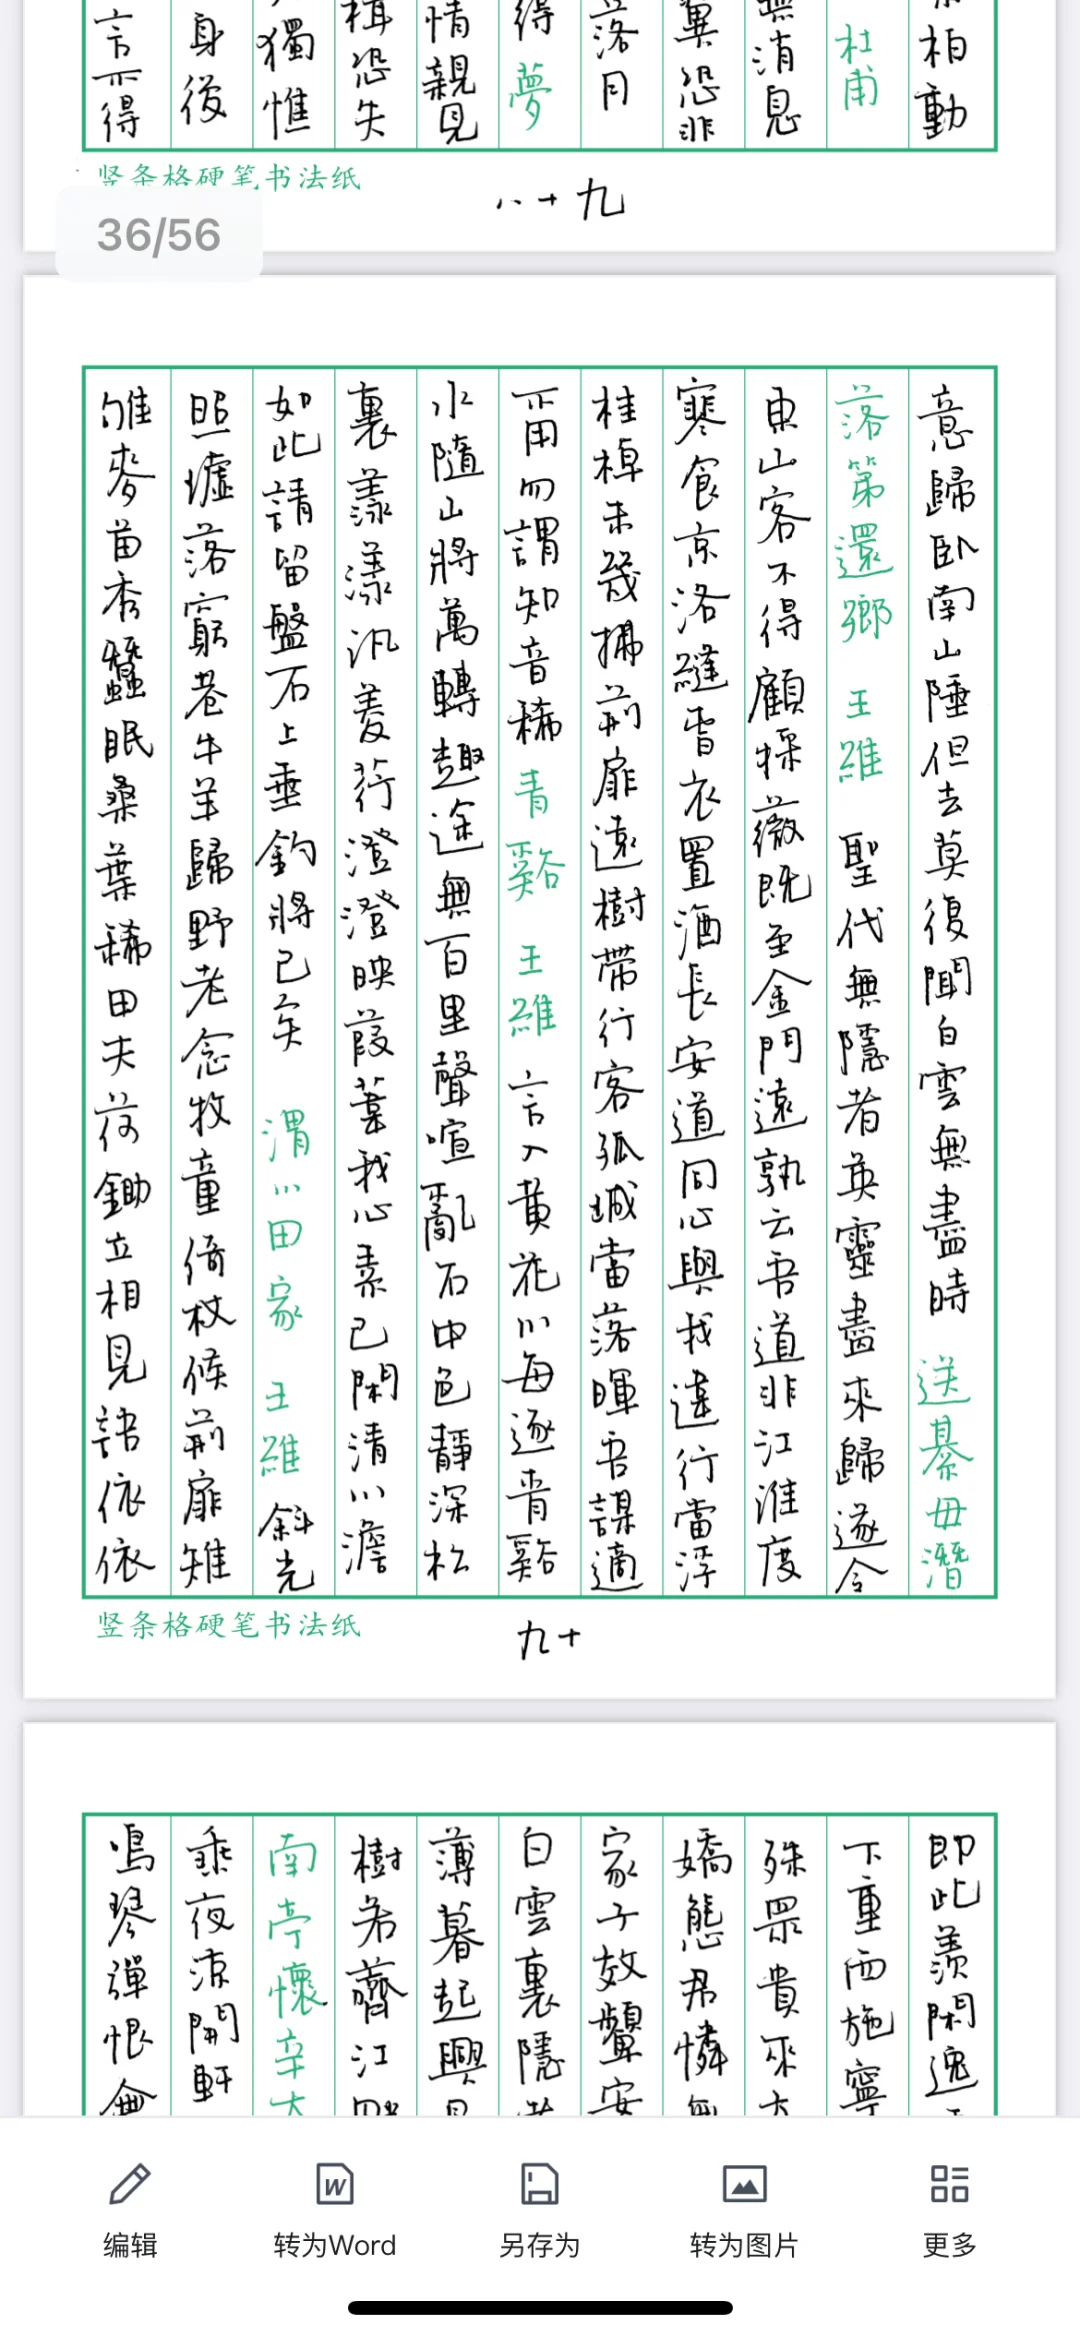 柏動
杜甫
無消息
翼恐非
落月
得 夢
情親見
楫恐失
獨憔
身後
言不得
竖条格硬笔书法纸
八十九
36/56
意歸卧南山陲但去莫復聞白雲無盡時 送綦毋潛
落第還鄉 王維 聖代無隱者英靈盡來歸遂令
東山客不得顧採薇既至金門遠孰云吾道非江淮度
寒食京洛縫春衣置酒長安道同心與我違行當浮
桂棹未幾拂荊扉遠樹帶行客孤城當落暉吾謀適
不用勿謂知音稀 青谿 王維 言入黃花川每逐青谿
水隨山將萬轉趣途無百里聲喧亂石中色靜深松
裏漾漾汎菱荇澄澄映葭葦我心素已閑清川澹
如此請留盤石上垂釣將已矣 渭川田家 王維 斜光
照墟落窮巷牛羊歸野老念牧童倚杖候荊扉雉
雊麥苗秀蠶眠桑葉稀田夫荷鋤立相見語依依
竖条格硬笔书法纸
九十
即此羨閑逸
下重西施寧
殊眾貴來方
嬌態君憐無
家子效顰安
白雲裏隱者
薄暮起興是
樹若薺江畔
南亭懷辛大
乘夜涼開軒
鳴琴彈恨無
编辑
转为Word
另存为
转为图片
更多